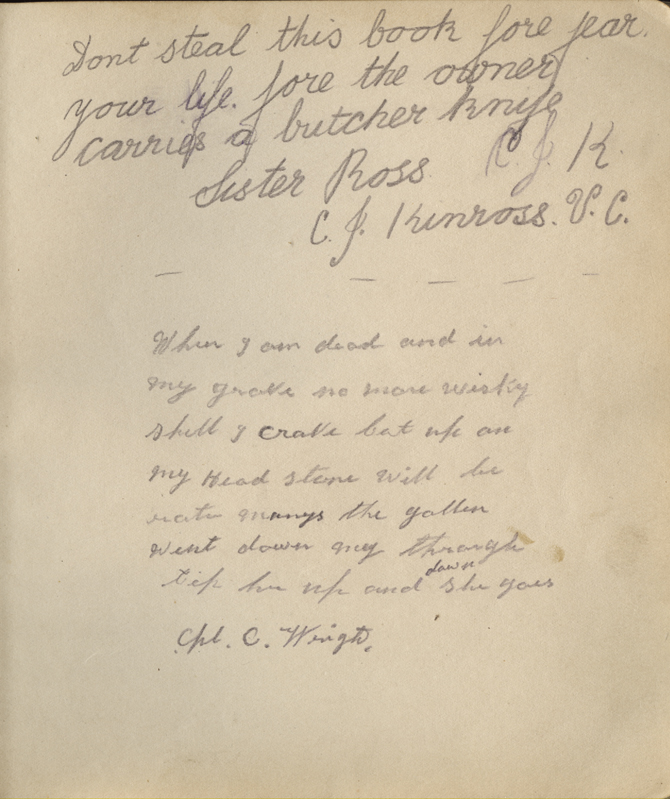 Dont steal this book fore fear.
your life. fore the owner
carries a butcher knife
Sister Ross C. J. K.
C. J. Kinross. V. C.
When I am dead and in
my grave no more wisky
shell I crave but up on
my Head stone will be
rate manys the gallen
went down my through
tip her up and down she goes
Cpl. C. Wright.